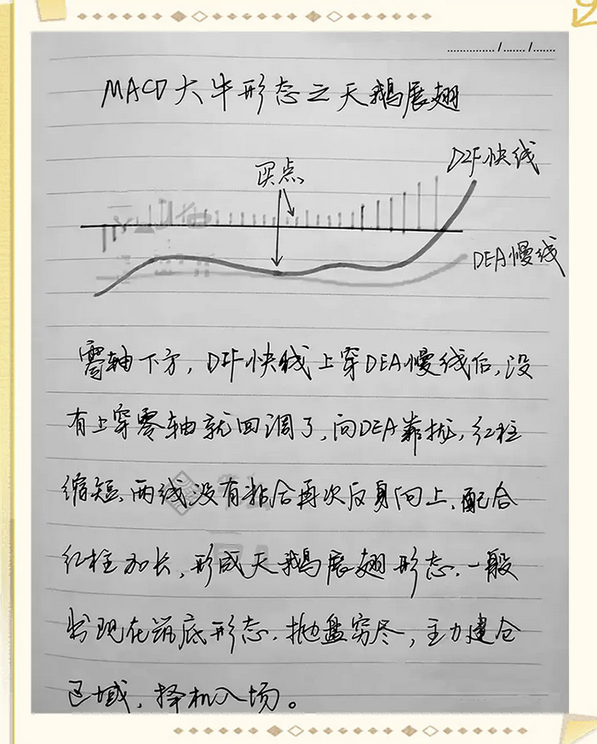 MACD大牛形态之天鹅展翅
买点
DIF快线
DEA慢线
零轴下方，DIF快线上穿DEA慢线后，没
有上穿零轴就回调了，向DEA靠拢，红柱
缩短，两线没有粘合再次反身向上，配合
红柱加长，形成天鹅展翅形态，一般
出现在筑底形态，抛盘穷尽，主力建仓
区域，择机入场。